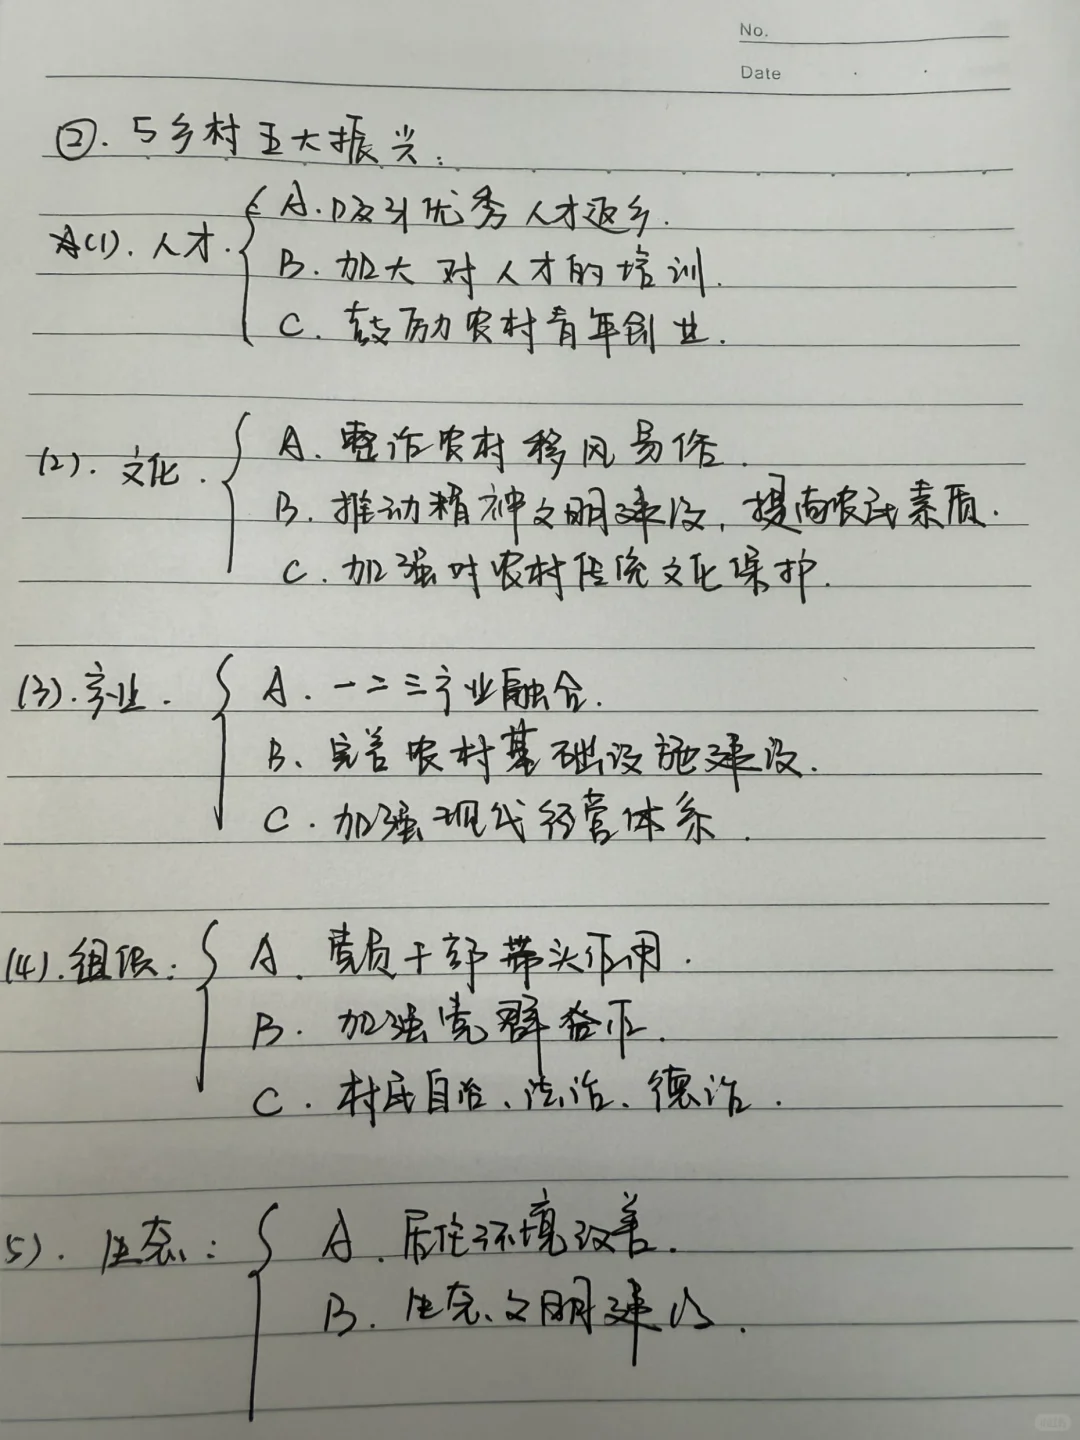 No.
Date
②. 5乡村五大振兴:
(1). 人才.
A. 吸引优秀人才返乡.
B. 加大对人才的培训.
C. 鼓励农村青年创业.
(2). 文化.
A. 整治农村移风易俗.
B. 推动精神文明建设, 提高农民素质.
C. 加强对农村传统文化保护.
(3). 产业.
A. 一二三产业融合.
B. 完善农村基础设施建设.
C. 加强现代经营体系.
(4). 组织:
A. 党员干部带头作用.
B. 加强党群合作.
C. 村民自治、法治、德治.
5). 生态:
A. 居住环境改善.
B. 生态文明建设.